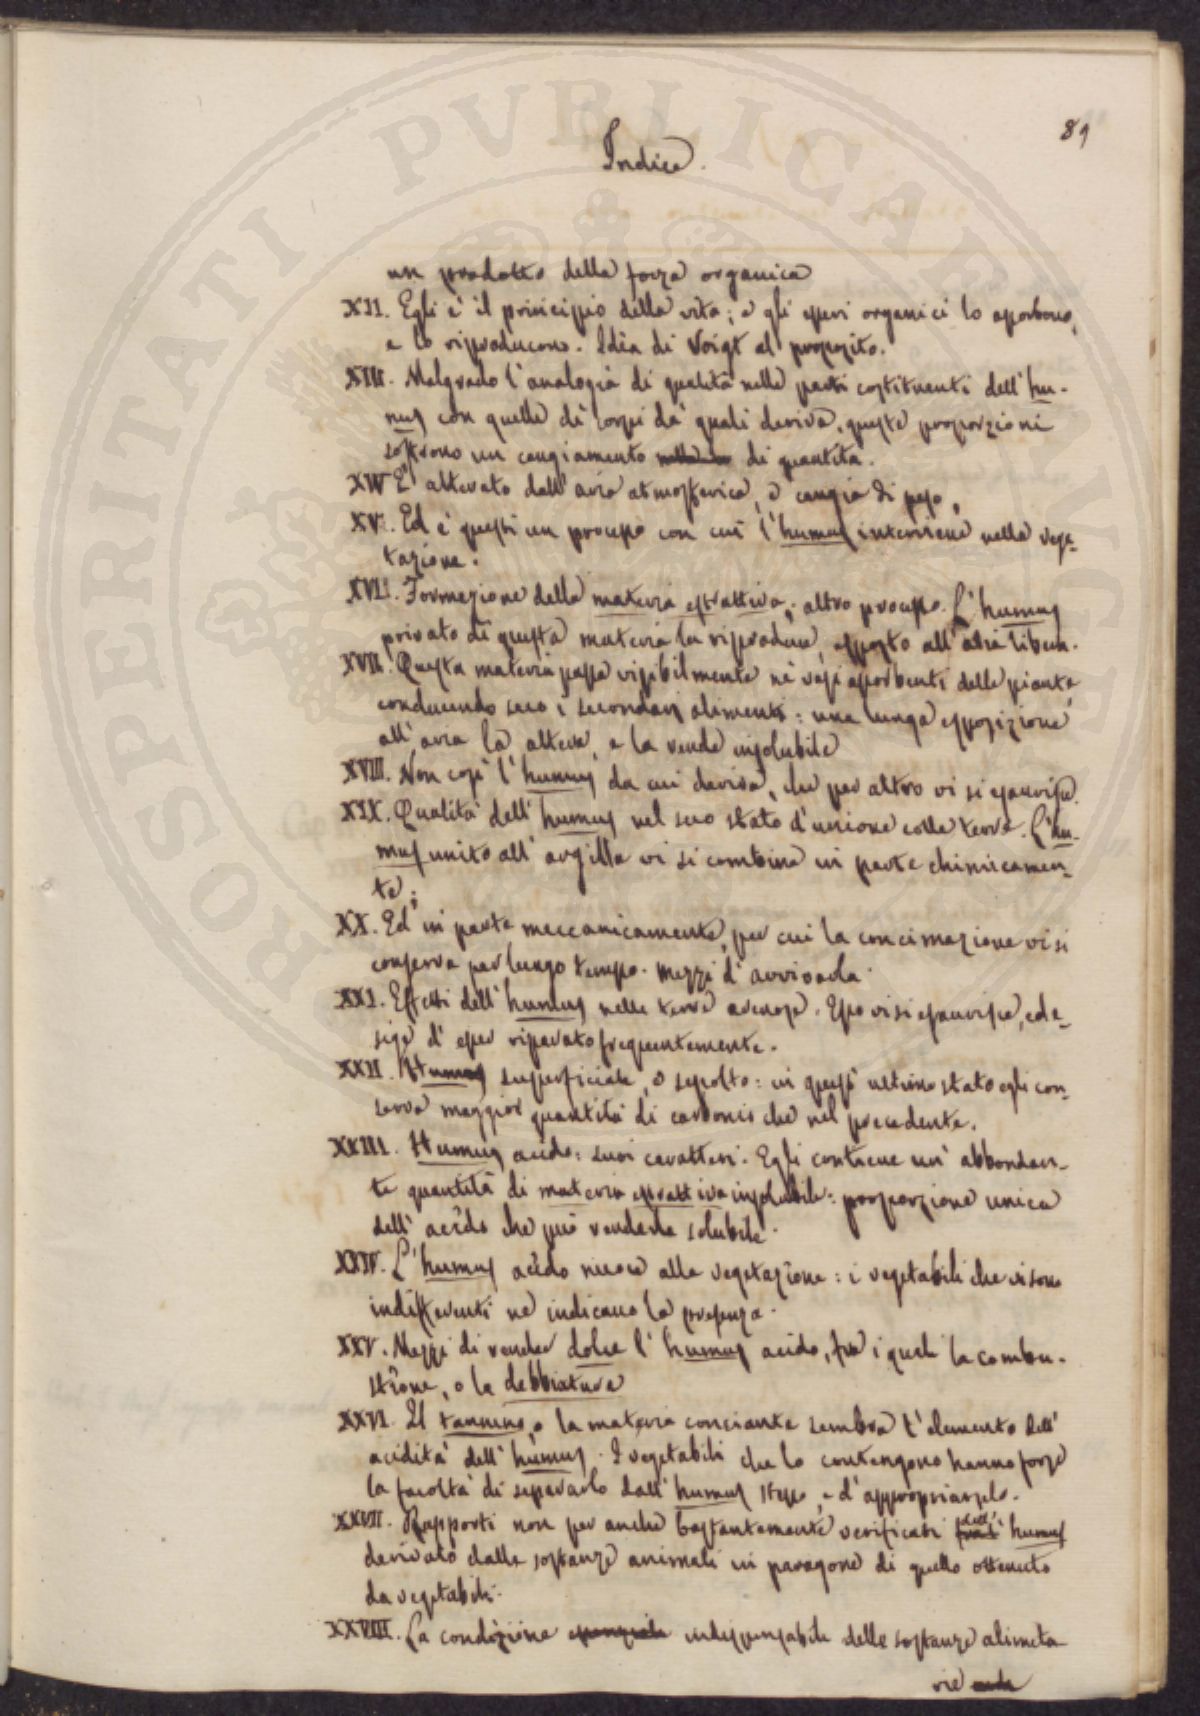 89
Indice.
un prodotto della forza organica
XII. Egli è il principio della vita; e gli esseri organici lo assorbono,
e lo riproducono. Idea di Voigt al proposito.
XIII. Malgrado l'analogia di qualità nelle parti costituenti dell'hu-
mus con quelle di corpi da' quali deriva, queste proporzioni
soffrono un cangiamento di quantità.
XIV E' alterato dall'aria atmosferica, e cangia di peso.
XV. Ed è questi un processo con cui l'humus interviene nella vege-
tazione.
XVI. Formazione della materia estrattiva; altro processo. L'humus
privato di questa materia la riproduce, esposto all'aria libera.
XVII. Questa materia passa visibilmente ne' vasi assorbenti delle piante,
conducendo seco i secondarj alimenti: una lunga esposizione
all'aria la altera, e la rende insolubile
XVIII. Non così l'humus da cui deriva, che per altro vi si esaurisce.
XIX. Qualità dell'humus nel suo stato d'unione colla terra. L'hu-
mus unito all'argilla vi si combina in parte chimicamen-
te;
XX. Ed in parte meccanicamente, per cui la concimazione vi si
conserva per lungo tempo. Mezzi d'avvisarla.
XXI. Effetti dell'humus nelle terre arenose. Esso vi si esaurisce, ed e-
sige d'esser riparato frequentemente.
XXII. Humus superficiale, o sepolto: in quest'ultimo stato egli con-
serva maggior quantità di carbonio che nel precedente.
XXIII. Humus acido: suoi caratteri. Egli contiene un'abbondan-
te quantità di materia estrattiva insolubile: proporzione unica
dell'acido che può renderla solubile.
XXIV. L'humus acido nuoce alla vegetazione: i vegetabili che vi sono
indifferenti ne indicano la presenza.
XXV. Mezzi di render dolce l'humus acido, fra i quali la combu-
stione, o la debbiatura
XXVI. Il tannino, o la materia conciante sembra l'elemento dell'
acidità dell'humus. I vegetabili che lo contengono hanno forse
la facoltà di separarlo dall'humus stesso, e d'appropriarselo.
XXVII. Rapporti non per anche bastantemente verificati dell' humus
derivato dalle sostanze animali in paragone di quello ottenuto
da vegetabili.
XXVIII. La condizione essenziale indispensabile delle sostanze alimenta-
rie
PROSPERITATI PVBLICAE AVGENDAE